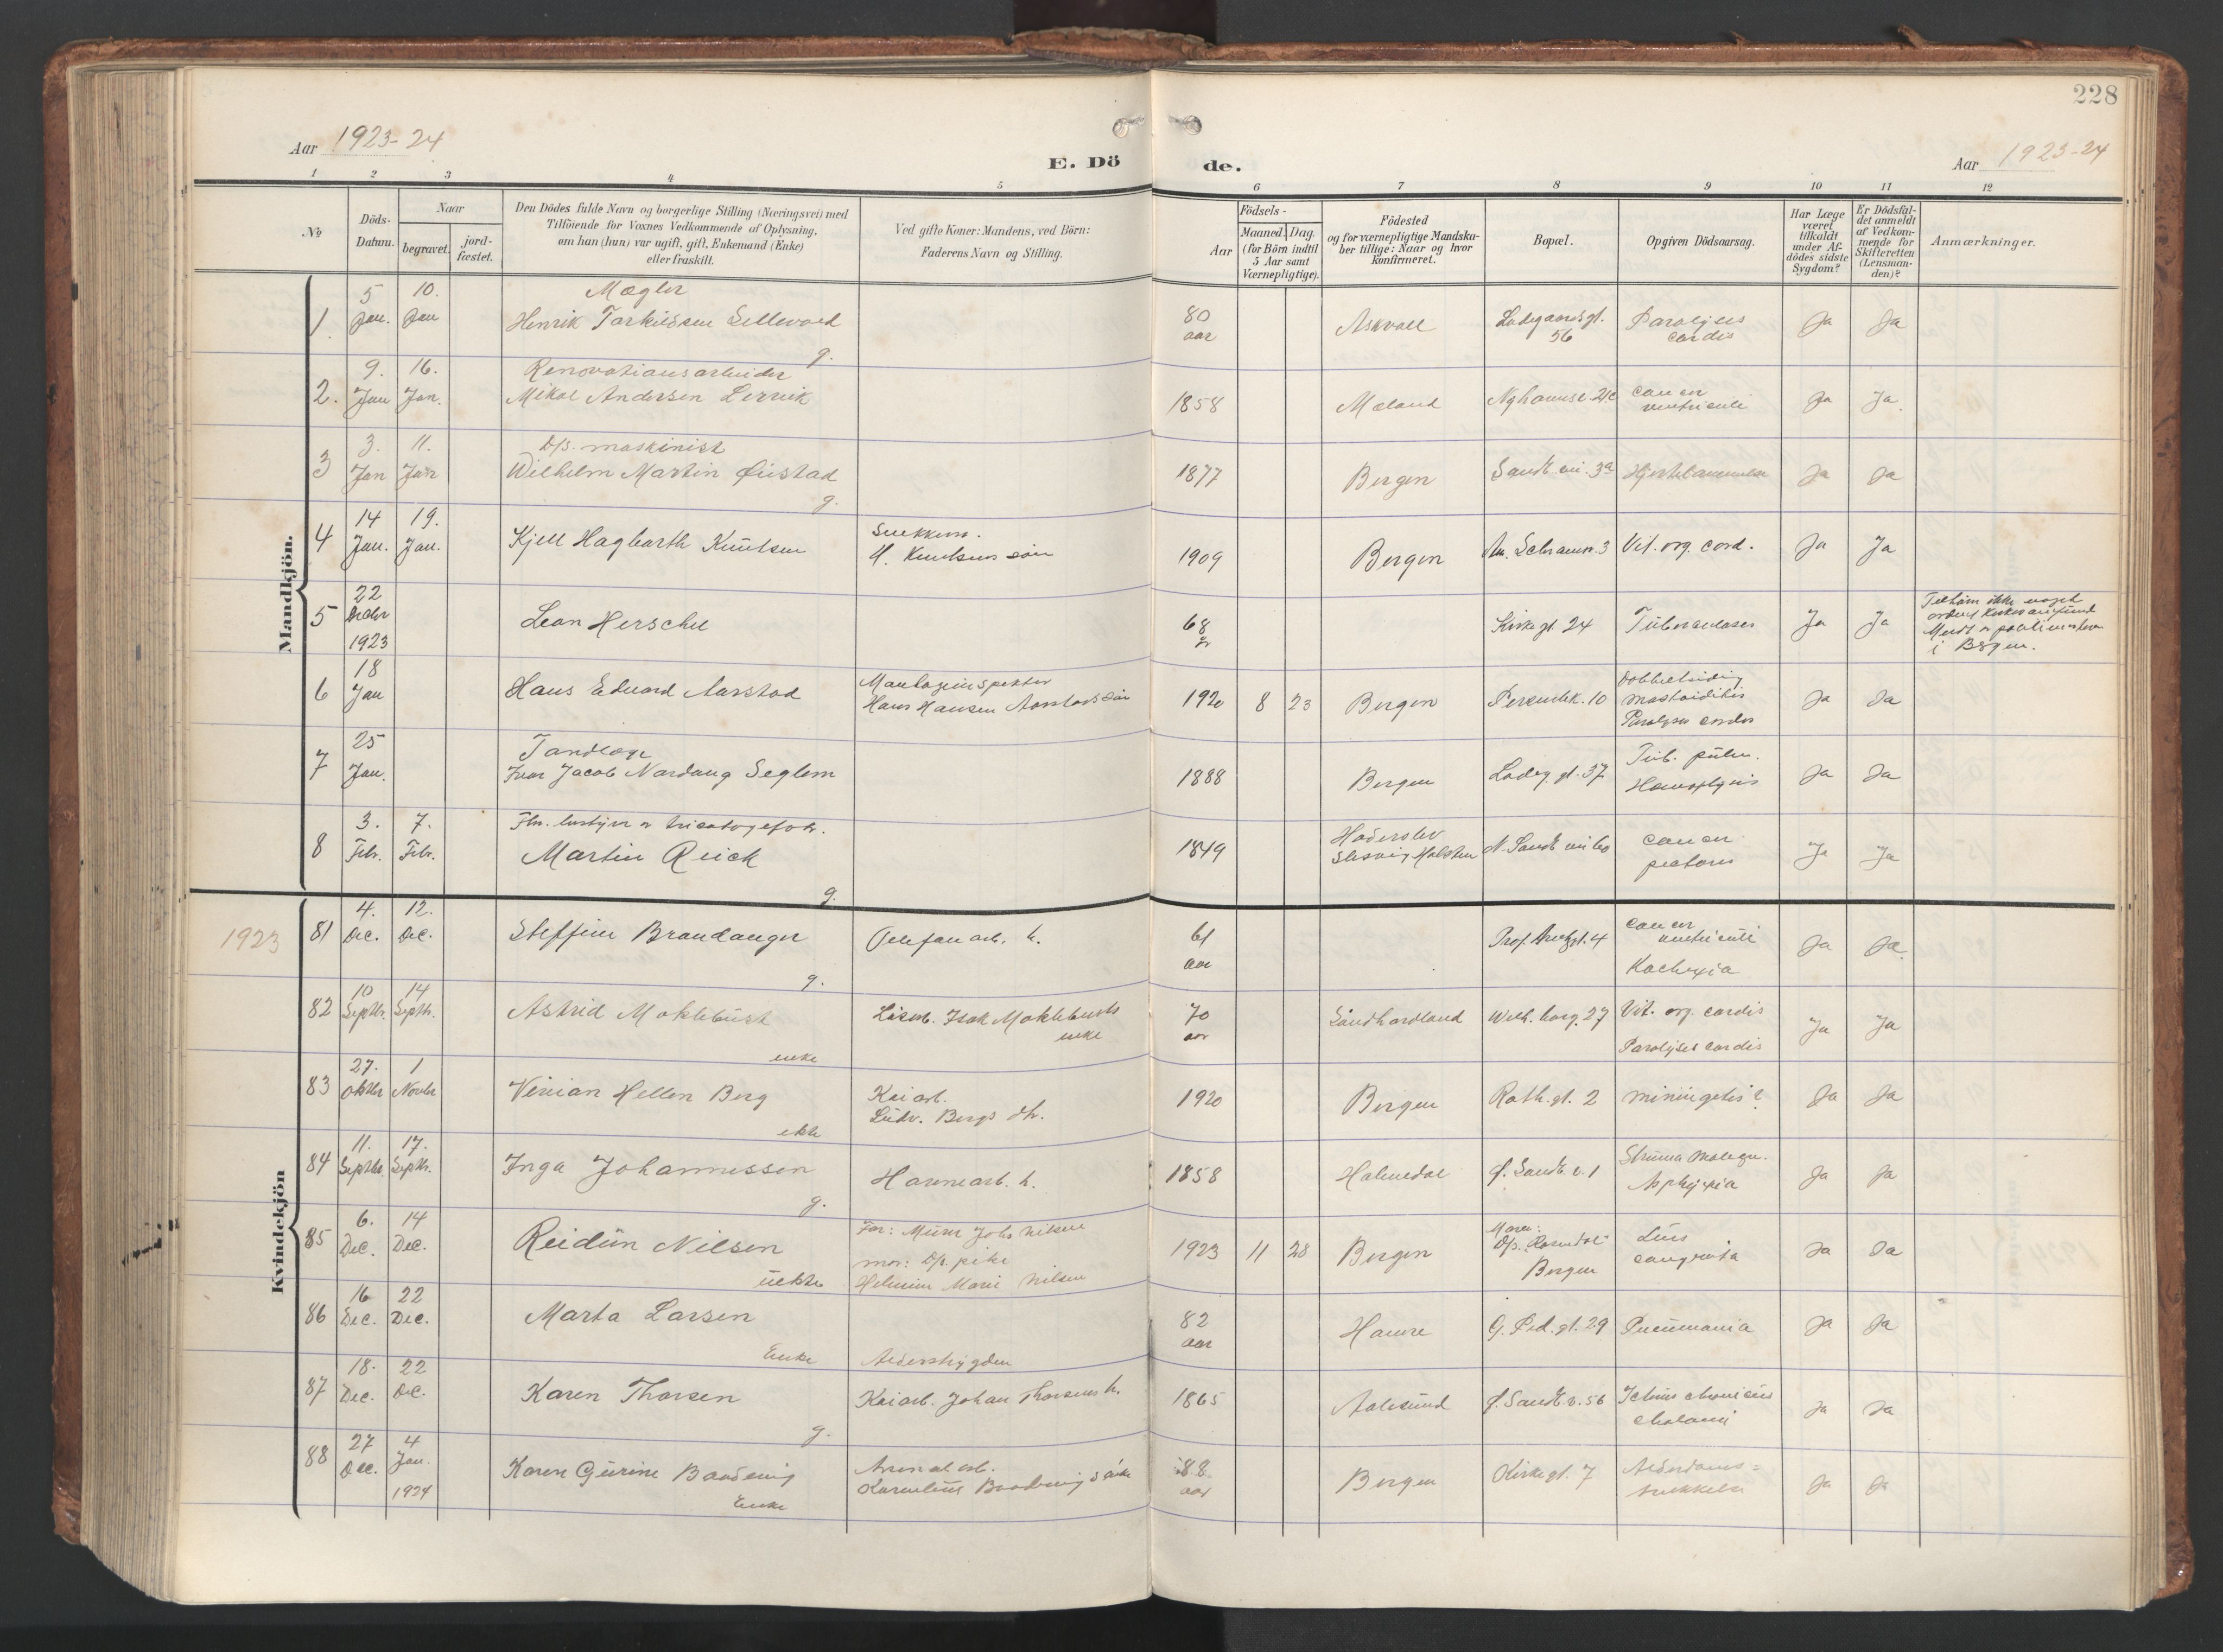 228
Aar 1923-24
E. Dö
de.
Aar 1923-24
1 2 3 4 5 6 7 8 9 10 11 12
No
Döds-Datum.
Naar
begravet.
jord-fæstet.
Den Dödes fulde Navn og borgerlige Stilling (Næringsvei) med
Tilföiende for Voxnes Vedkommende af Oplysning,
om han (hun) var ugift, gift, Enkemand (Enke)
eller fraskilt.
Ved gifte Koner: Mandens, ved Börn:
Faderens Navn og Stilling.
Födsels-
Aar
Maaned. Dag.
(for Börn indtil
5 Aar samt
Værnepligtige).
Födested
og for værnepligtige Mandska-
ber tillige: Naar og hvor
Konfirmeret.
Bopæl.
Opgiven Dödsaarsag.
Har Læge
været
tilkaldt
under Af-
dödes sidste
Sygdom?
Er Dödsfal-
det anmeldt
af Vedkom-
mende for
Skifteretten
(Lensman-
den)?
Anmærkninger.
Mandkjön.
1 5 Jan. 10. Jan
Mægler
Henrik Torkildsen Sellevold
g.
80 aar Askvoll Ladegaardsgt. 56 Paralyses cordis Ja Ja
2. 9. Jan 16. Jan.
Renovationsarbeider
Mikal Andersen Lervik
1858 Mæland Nyhavnsv. cancer ventriculi Ja Ja
3 3. Jan 11. Jan
D/s. maskinist
Wilhelm Martin Øiestad
g.
1877 Bergen Sandv. vei. 3a Ja Ja
4 14 Jan. 19. Jan.
Kjell Hagbarth Knutsen
Snekkerm.
H. Knutsens søn
1909 Bergen 3 Vit. org. cord. Ja Ja
5 22 1923
Leon Herschel
68 år Kirkegt. 24 Tuberculoses Ja Ja
ikke noget
i Bergen.
6 18 Jan
Hans Edvard Aarstad
Hans Hansen Aarstads søn
1920 8 23 Bergen 10
Dobbeltsidig
mastoiditis
Paralyses cordis
Ja Ja
7 25 Jan.
Tandlæge
Ivar Jacob Nordang Seglem
1888 Bergen Ladeg. gt. 37
Tub. pulm.
Ja Ja
8 3. Febr. 7. Febr.
Martin Reick
g.
1849
Haderslev
Slesvig Holsten
N. Sandv. vei 60
cancer
pectoris
Ja Ja
Kvindekjön
1923
81 4. Dec. 12. Dec.
Steffine Brandanger
g.
Telefonarb. h.
61 aar gt. 4
cancer
ventriculi
Kachexia
Ja Ja
82 10 Septbr. 14 Septbr.
Astrid Moklebust
enke
Isak Moklebusts
enke
70 aar Søndhordland 27
Vit. org. cordis
Paralyses cordis
Ja Ja
83 27. Oktbr 1 Novbr
Vivian Hellen Berg
ekte
Kaiarb.
Ludv. Bergs dtr.
1920 Bergen Roth. gt. 2 miningetis? Ja Ja
84 11. Septbr. 17. Septbr.
Inga Johannessen
g.
Havnearb. h.
1858 Holmedal Sandv. v. 1
Struma malign.
Asphyxia
Ja Ja
85 6. Dec. 14 Dec.
Reidun Nilsen
uekte
Far: Murer Johs Nilsen
mor: D/s. pike
Marie Nilsen
1923 11 28 Bergen
Bergen
Lues
congenita
Ja Ja
86 16 Dec. 22 Dec.
Marta Larsen
Enke
Alderstrygden
82 aar Hamre 29 Pneumonia Ja Ja
87 18. Dec. 22 Dec.
Karen Thorsen
g.
Kaiarb. Johan Thorsens h.
1865 Aalesund Sandv. v. 56
Icterus chronicus
Ja Ja
88 27 Dec. 4 Jan. 1924
Karen Gurine
Enke
Arsenalarb.
Kornelius
88 aar Bergen Kirkegt. 7
Alderdoms=
svekkelse
Ja Ja